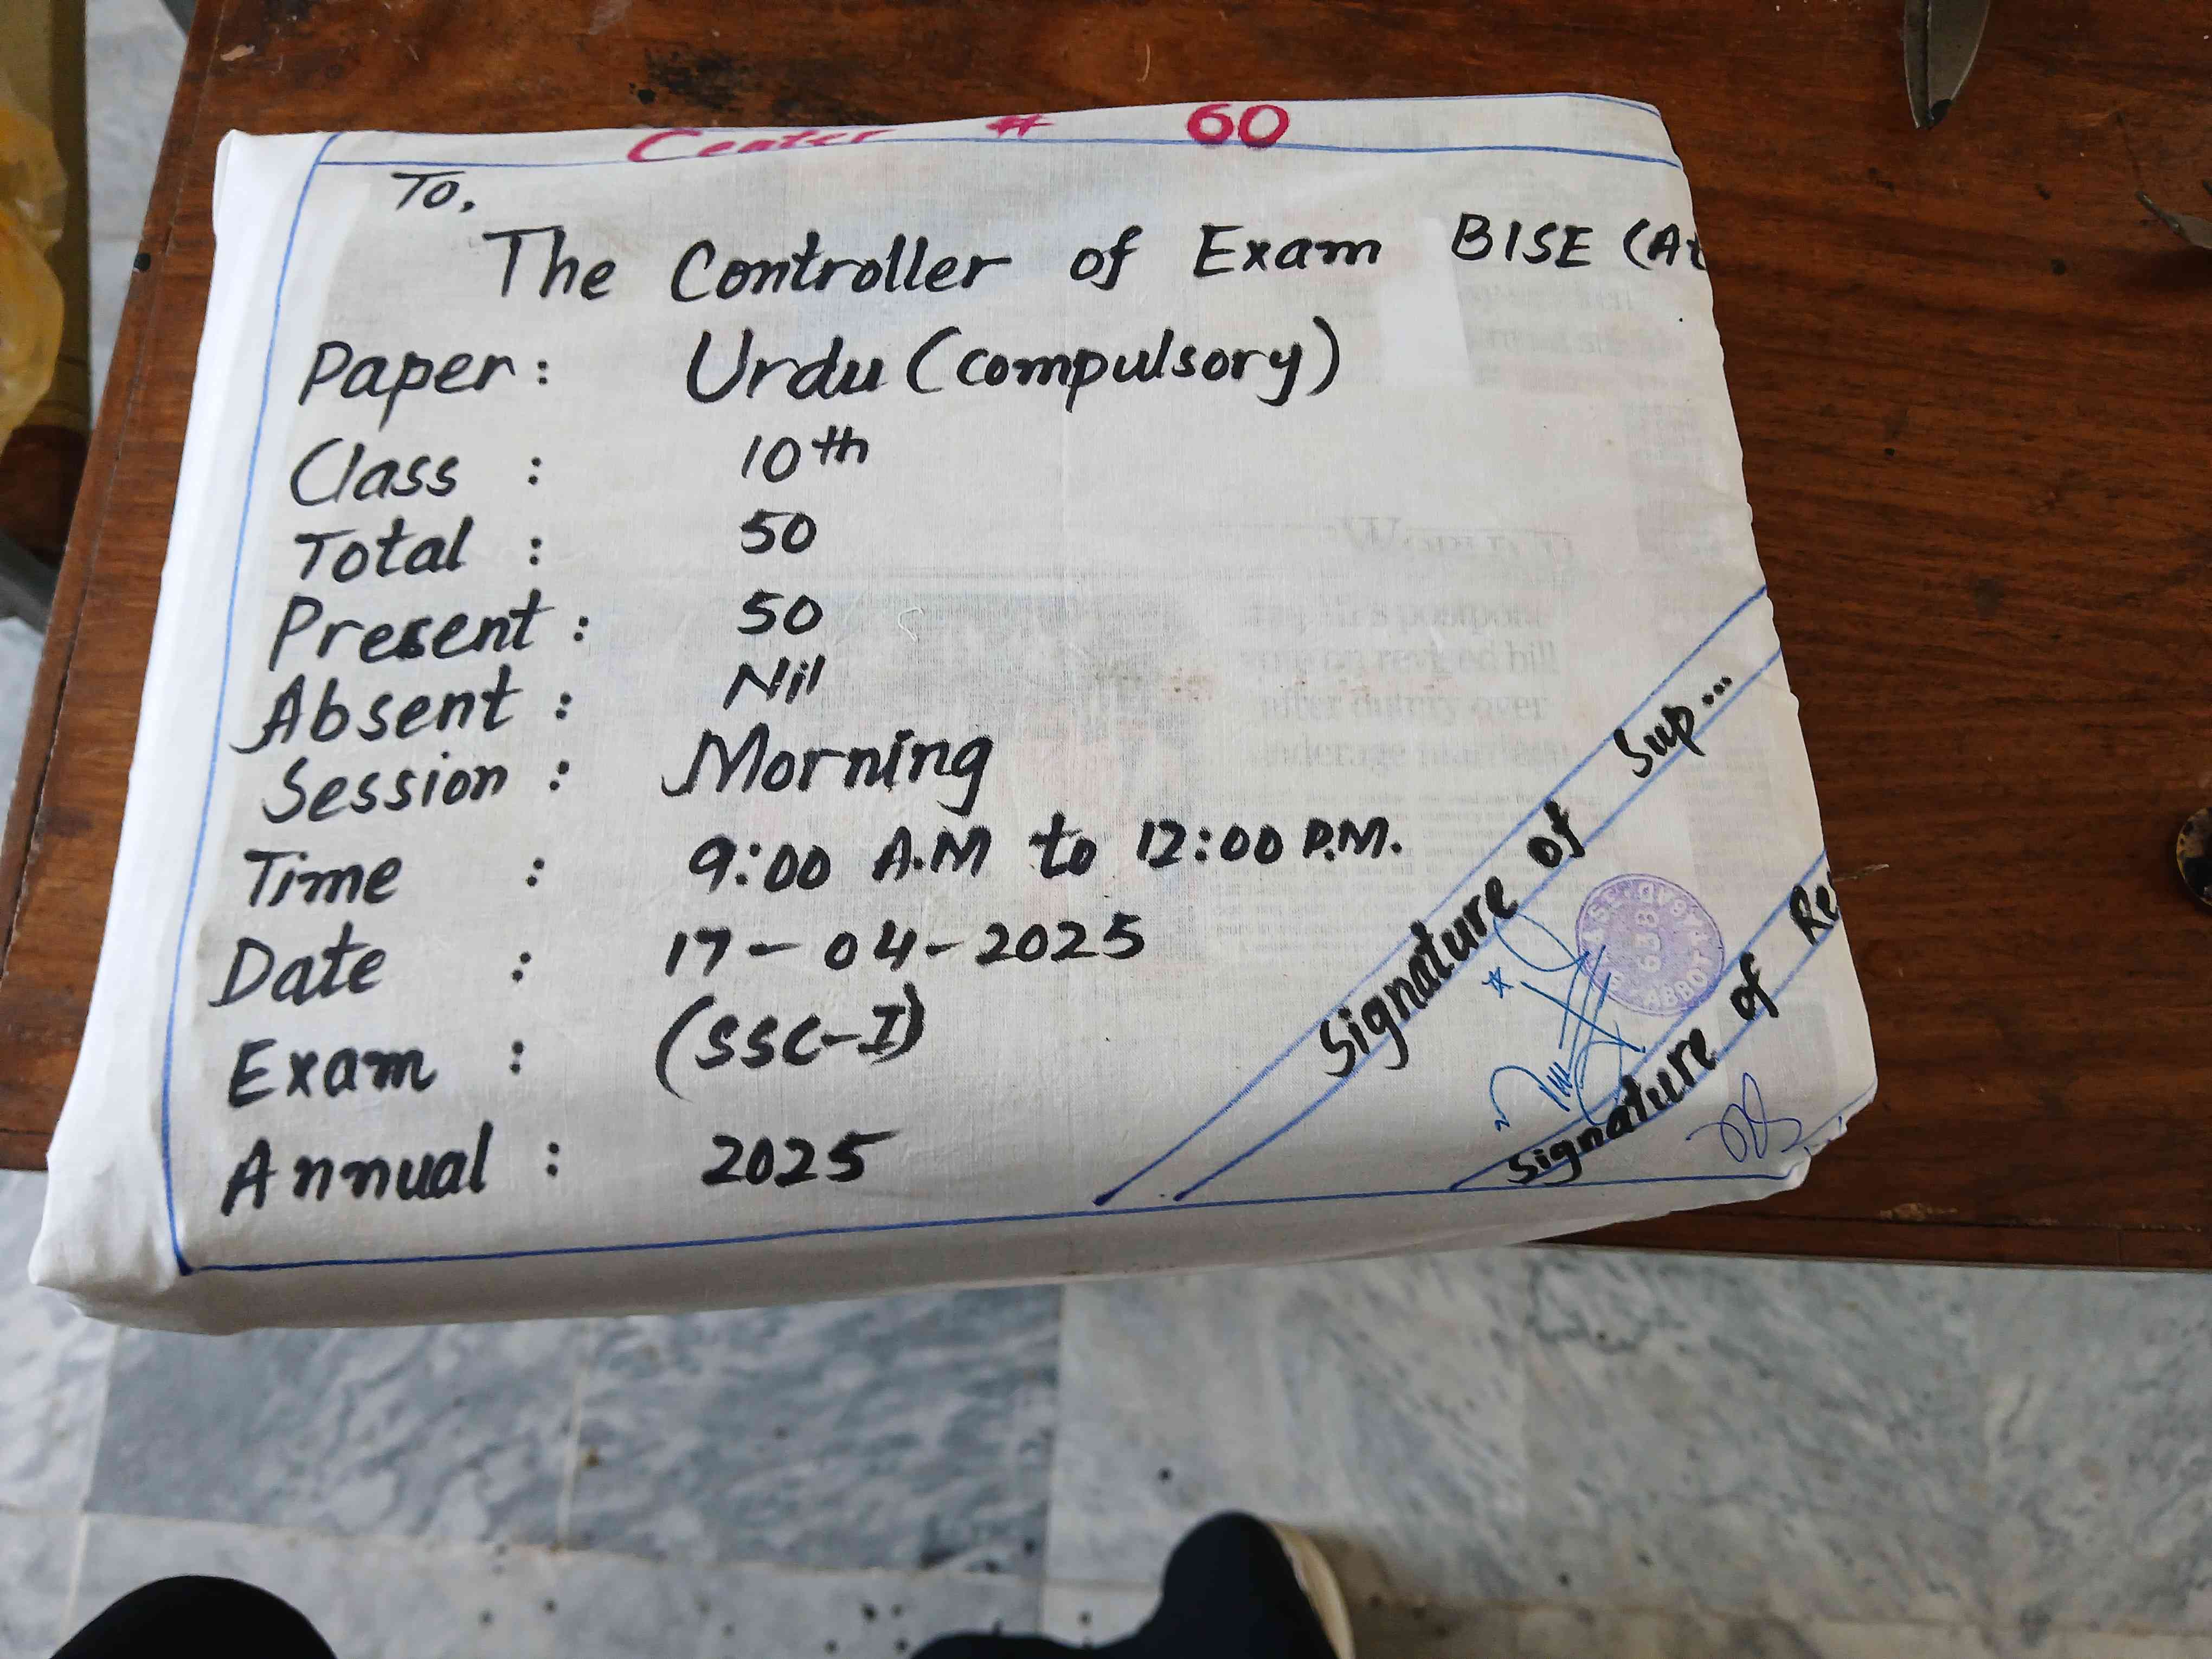 Center # 60
To,
The Controller of Exam BISE (At
Paper: Urdu (compulsory)
Class : 10th
Total : 50
Present : 50
Absent : Nil
Session : Morning
Time : 9:00 A.M to 12:00 P.M.
Date : 17-04-2025
Exam : (SSC-I)
Annual : 2025
Signature of Sup...
Signature of Re